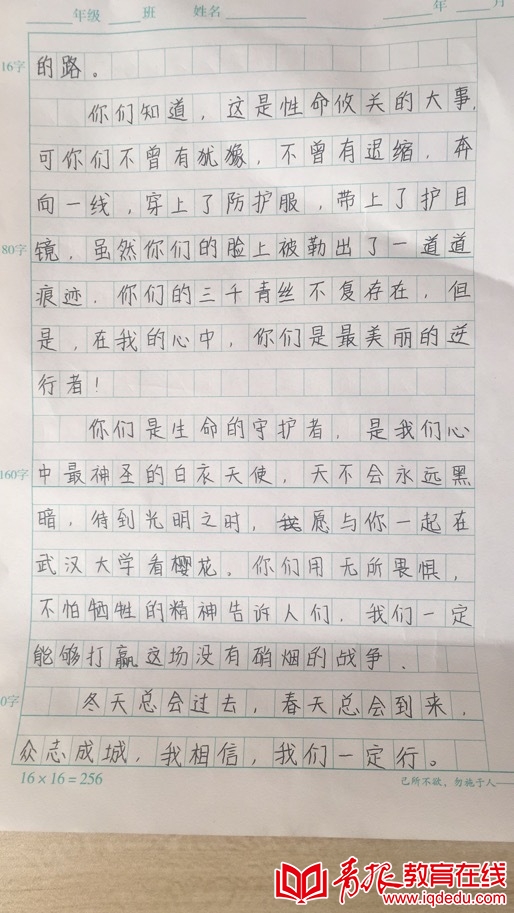 年级 班 姓名 年 月
16字
的路。
你们知道，这是性命攸关的大事，
可你们不曾有犹豫，不曾有退缩，奔
向一线，穿上了防护服，带上了护目
80字
镜，虽然你们的脸上被勒出了一道道
痕迹，你们的三千青丝不复存在，但
是，在我的心中，你们是最美丽的逆
行者！
你们是生命的守护者，是我们心
160字
中最神圣的白衣天使，天不会永远黑
暗，待到光明之时，我愿与你一起在
武汉大学看樱花。你们用无所畏惧，
不怕牺牲的精神告诉人们，我们一定
能够打赢这场没有硝烟的战争．
0字
冬天总会过去，春天总会到来，
众志成城，我相信，我们一定行。
16×16=256
己所不欲，勿施于人—
青报教育在线
www.iqdedu.com